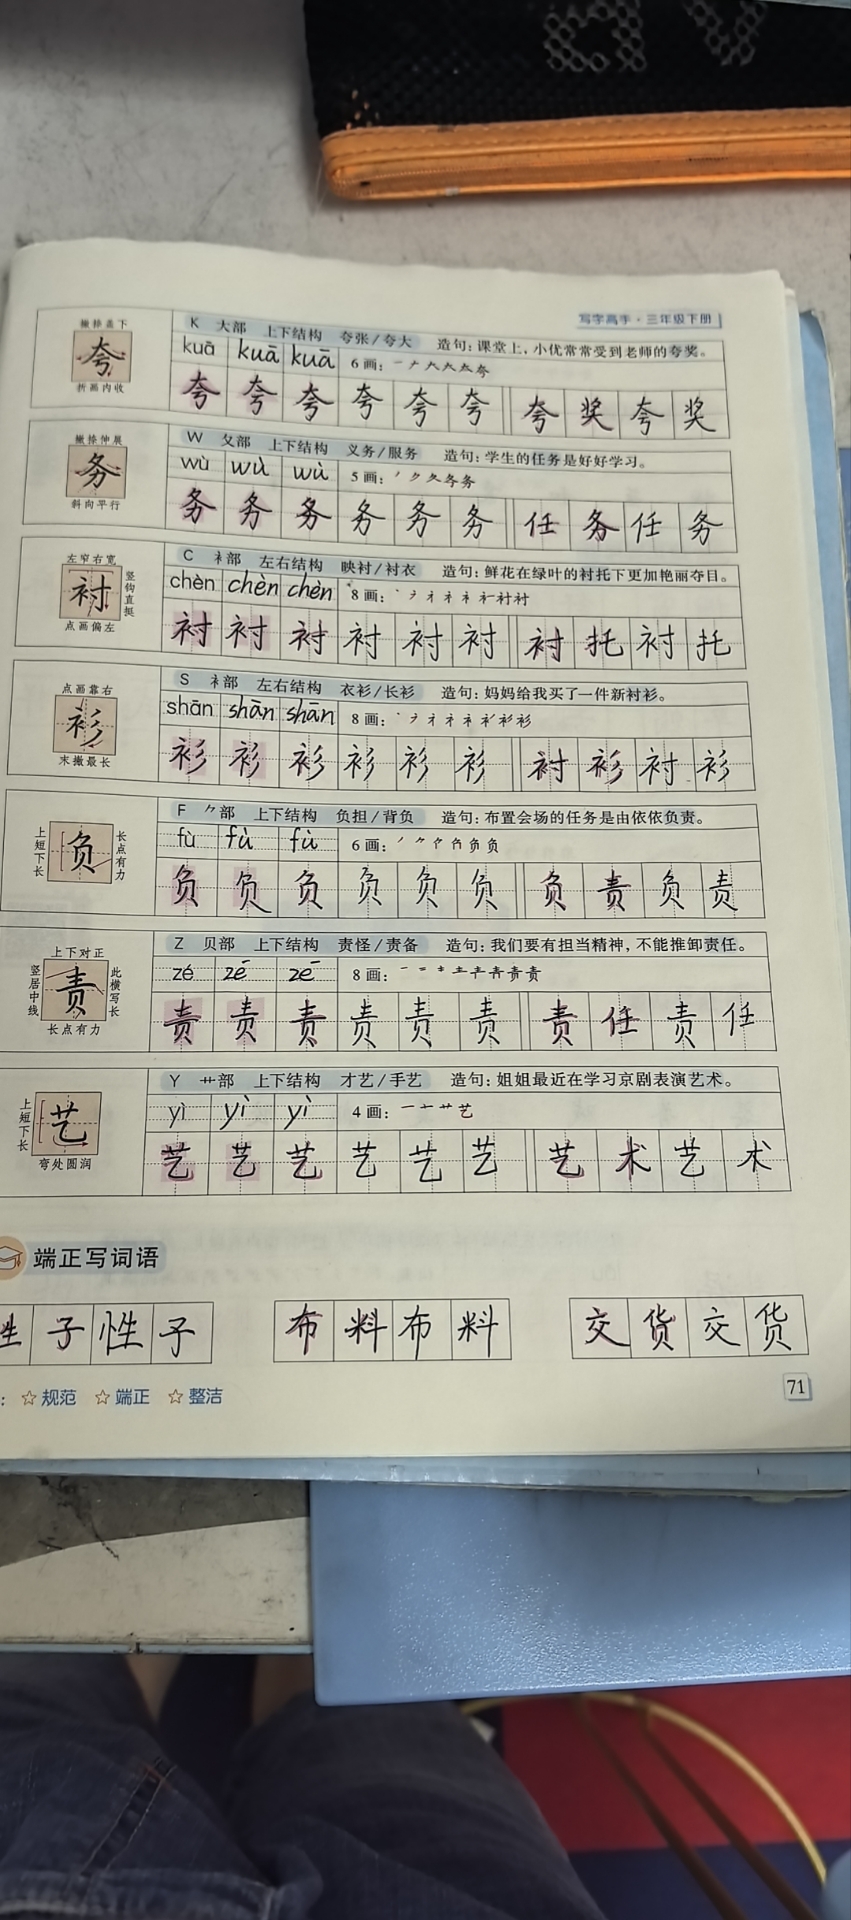 写字高手·三年级下册
撇捺盖下
夸
折画内收
K 大部 上下结构 夸张/夸大 造句：课堂上，小优常常受到老师的夸奖。
kuā kuā kuā 6画：
夸 夸 夸 夸 夸 夸 夸 奖 夸 奖
撇捺伸展
务
斜向平行
W 夂部 上下结构 义务/服务 造句：学生的任务是好好学习。
wù wù wù 5画：
务 务 务 务 务 务 任 务 任 务
左窄右宽
衬
竖钩直挺
点画偏左
C 衤部 左右结构 映衬/衬衣 造句：鲜花在绿叶的衬托下更加艳丽夺目。
chèn chèn chèn 8画：
衬 衬 衬 衬 衬 衬 衬 托 衬 托
点画靠右
衫
末撇最长
S 衤部 左右结构 衣衫/长衫 造句：妈妈给我买了一件新衬衫。
shān shān shān 8画：
衫 衫 衫 衫 衫 衫 衬 衫 衬 衫
上短下长
负
长点有力
F ⺈部 上下结构 负担/背负 造句：布置会场的任务是由依依负责。
fù fù fù 6画：
负 负 负 负 负 负 负 责 负 责
上下对正
竖居中线
责
此横写长
长点有力
Z 贝部 上下结构 责怪/责备 造句：我们要有担当精神，不能推卸责任。
zé zē zē 8画：
责 责 责 责 责 责 责 任 责 任
上短下长
艺
弯处圆润
Y 艹部 上下结构 才艺/手艺 造句：姐姐最近在学习京剧表演艺术。
yì yì yì 4画：
艺 艺 艺 艺 艺 艺 艺 术 艺 术
端正写词语
性 子 性 子 布 料 布 料 交 货 交 货
：☆规范 ☆端正 ☆整洁
71